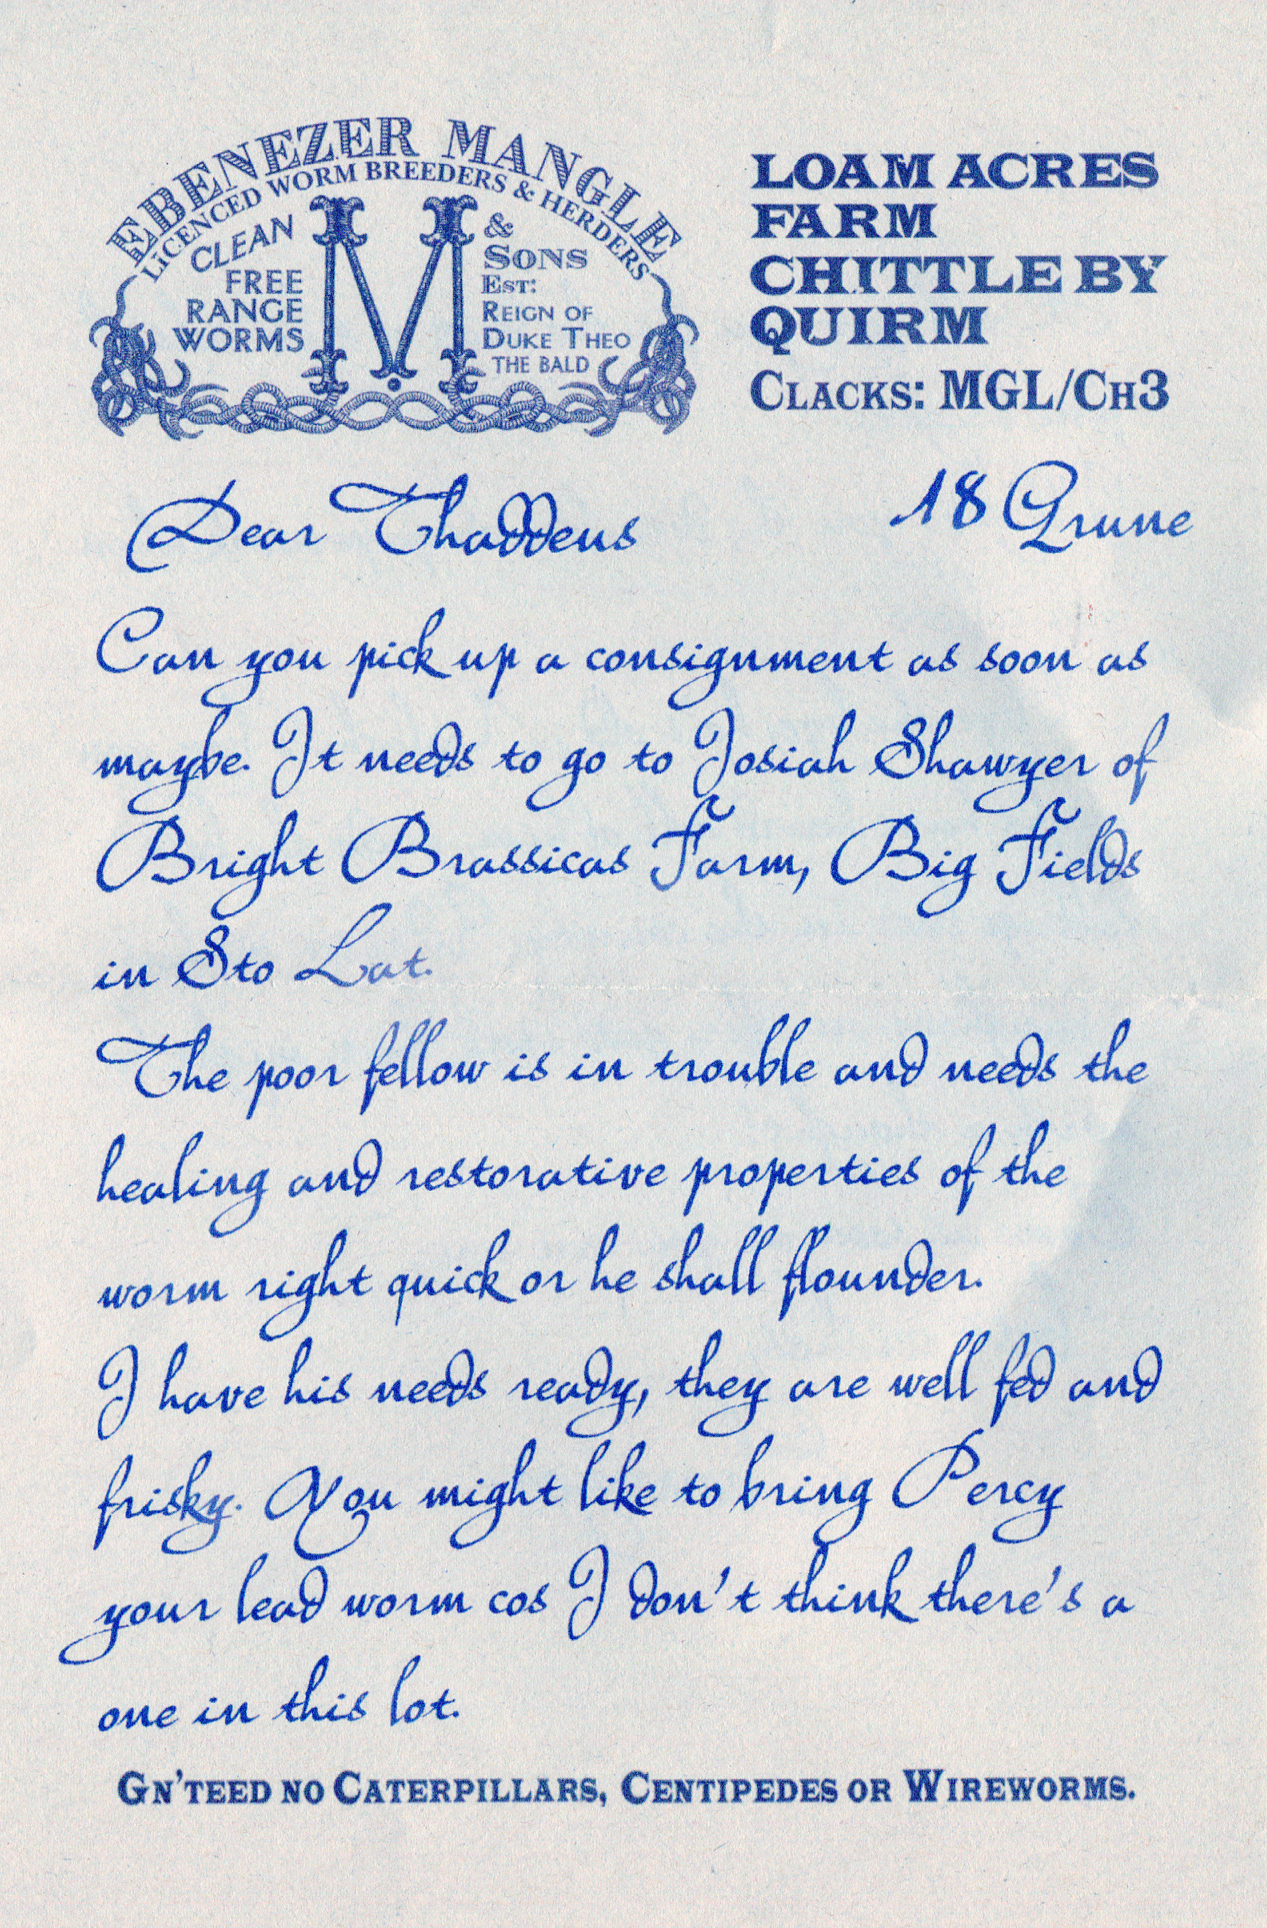 EBENEZER MANGLE
LICENCED WORM BREEDERS & HERDERS
CLEAN
FREE
RANGE
WORMS
M
&
SONS
EST:
REIGN OF
DUKE THEO
THE BALD
LOAM ACRES
FARM
CHITTLE BY
QUIRM
CLACKS: MGL/CH3
18 Grune
Dear Thaddeus
Can you pick up a consignment as soon as
maybe. It needs to go to Josiah Shawyer of
Bright Brassicas Farm, Big Fields
in Sto Lat.
The poor fellow is in trouble and needs the
healing and restorative properties of the
worm right quick or he shall flounder.
I have his needs ready, they are well fed and
frisky. You might like to bring Percy
your lead worm cos I don't think there's a
one in this lot.
GN'TEED NO CATERPILLARS, CENTIPEDES OR WIREWORMS.